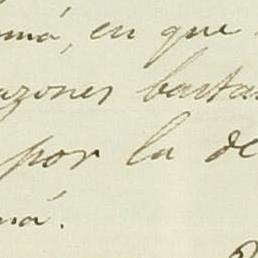 amá, en que
azones basta
por la de
má.